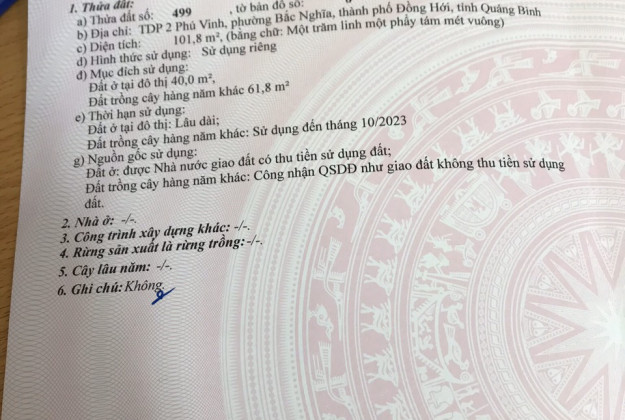 1. Thửa đất:
a) Thửa đất số: 499 , tờ bản đồ số:
b) Địa chỉ: TDP 2 Phú Vinh, phường Bắc Nghĩa, thành phố Đồng Hới, tỉnh Quảng Bình
c) Diện tích: 101,8 m², (bằng chữ: Một trăm linh một phẩy tám mét vuông)
d) Hình thức sử dụng: Sử dụng riêng
đ) Mục đích sử dụng:
Đất ở tại đô thị 40,0 m²,
Đất trồng cây hàng năm khác 61,8 m²
e) Thời hạn sử dụng:
Đất ở tại đô thị: Lâu dài;
Đất trồng cây hàng năm khác: Sử dụng đến tháng 10/2023
g) Nguồn gốc sử dụng:
Đất ở: được Nhà nước giao đất có thu tiền sử dụng đất;
Đất trồng cây hàng năm khác: Công nhận QSDĐ như giao đất không thu tiền sử dụng
đất.
2. Nhà ở: -/-.
3. Công trình xây dựng khác: -/-.
4. Rừng sản xuất là rừng trồng: -/-.
5. Cây lâu năm: -/-.
6. Ghi chú: Không.